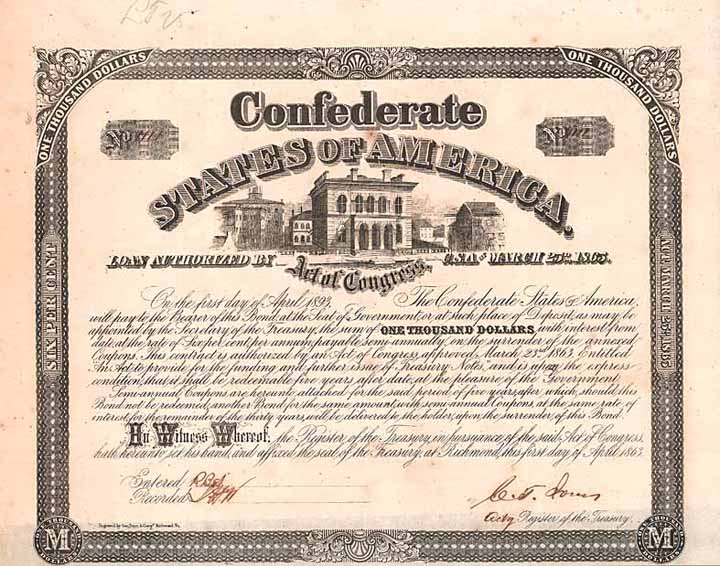 ONE THOUSAND DOLLARS
ONE THOUSAND DOLLARS
Confederate
No
No
STATES OF AMERICA.
LOAN AUTHORIZED BY Act of Congress, C.S.A. OF MARCH 23RD 1863.
SIX PER CENT
On the first day of April 1893, The Confederate States of America,
will pay to the Bearer of this Bond, at the Seat of Government, or at such place of Deposit, as may be
appointed by the Secretary of the Treasury, the sum of ONE THOUSAND DOLLARS, with interest from
date, at the rate of Six per cent, per annum, payable semi-annually, on the surrender of the annexed
Coupons. This contract is authorized by an Act of Congress approved, March 23rd 1863, Entitled
An Act to provide for the funding and further issue of Treasury Notes, and is upon the express
condition, that it shall be redeemable five years after date, at the pleasure of the Government.
Semi-annual Coupons are hereunto attached for the said period of five years, after which, should this
Bond not be redeemed, another Bond for the same amount, having semi-annual Coupons, at the same rate of
interest, for the remainder of the thirty years, will be delivered to the holder, upon the surrender of this Bond.
In Witness Whereof, the Register of the Treasury, in pursuance of the said Act of Congress,
hath hereunto set his hand, and affixed the seal of the Treasury, at Richmond, this first day of April 1863.
Entered
Recorded
C. T. Jones
Actg Register of the Treasury.
Richmond, Va.
ONE THOUSAND
M
DOLLARS
ONE THOUSAND
M
DOLLARS